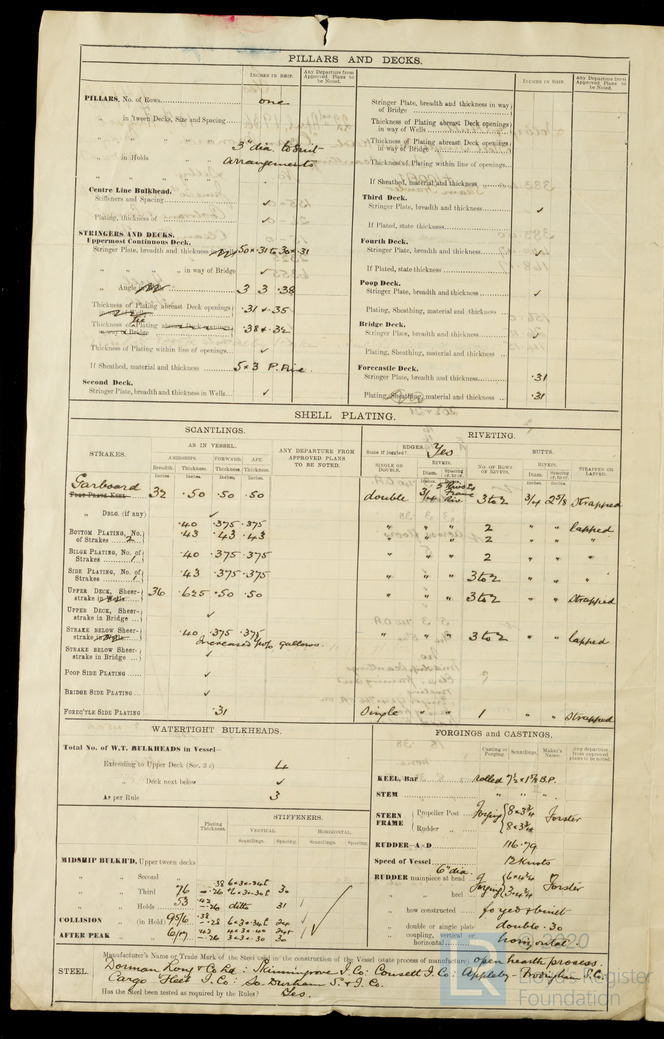 PILLARS AND DECKS.
INCHES IN SHIP.
Any Departure from Approved Plans to be Noted.
PILLARS, No. of Rows one
„ in 'tween Decks, Size and Spacing
3" dia to suit
„ in Holds arrangements
Centre Line Bulkhead.
Stiffeners and Spacing ✓
Plating, thickness of ✓
STRINGERS AND DECKS.
Uppermost Continuous Deck.
Stringer Plate, breadth and thickness 50 × .31 to 30 × .31
„ „ „ in way of Bridge ✓
„ Angle 3 3 .38
Thickness of Plating abreast Deck openings .31 & .35
Thickness of Plating .38 & .32
Thickness of Plating within line of openings ✓
If Sheathed, material and thickness 5 × 3 P. Pine.
Second Deck.
Stringer Plate, breadth and thickness in Wells ✓
INCHES IN SHIP.
Any Departure from Approved Plans to be Noted.
Stringer Plate, breadth and thickness in way of Bridge
Thickness of Plating abreast Deck openings in way of Wells
Thickness of Plating abreast Deck openings in way of Bridge
Thickness of Plating within line of openings
If Sheathed, material and thickness
Third Deck.
Stringer Plate, breadth and thickness ✓
If Plated, state thickness
Fourth Deck.
Stringer Plate, breadth and thickness ✓
If Plated, state thickness
Poop Deck.
Stringer Plate, breadth and thickness ✓
Plating, Sheathing, material and thickness
Bridge Deck.
Stringer Plate, breadth and thickness ✓
Plating, Sheathing, material and thickness
Forecastle Deck.
Stringer Plate, breadth and thickness .31
Plating, Sheathing, material and thickness .31
SHELL PLATING.
SCANTLINGS.
RIVETING.
STRAKES.
AS IN VESSEL.
AMIDSHIPS. FORWARD. AFT.
Breadth. Thickness. Thickness. Thickness.
Inches Inches Inches Inches
ANY DEPARTURE FROM APPROVED PLANS TO BE NOTED.
EDGES. Yes
State if joggled?
SINGLE OR DOUBLE.
RIVETS.
Diam.
NO. OF ROWS OF RIVETS.
BUTTS.
RIVETS.
Diam. Spacing cr. to cr.
Inches Inches
STRAPPED OR LAPPED.
Garboard 32 .50 .50 .50 double 3/4 3 to 2 3/4 2 5/8 Strapped
„ DBLG. (if any) ✓
BOTTOM PLATING, No. of Strakes 2 .40 .375 .375 „ „ „ 2 „ „ lapped
.43 .43 .43 „ 2 „ „ „
BILGE PLATING, No. of Strakes 1 .40 .375 .375 „ „ „ 2 „ „ „
SIDE PLATING, No. of Strakes 1 .43 .375 .375 „ „ „ 3 to 2 „ „ „
UPPER DECK, Sheerstrake in Wells 36 .625 .50 .50 „ „ „ 3 to 2 „ „ Strapped
UPPER DECK, Sheerstrake in Bridge ✓
STRAKE BELOW Sheerstrake .40 .375 .375 „ „ „ 3 to 2 „ „ lapped
Increased gallows.
STRAKE BELOW Sheerstrake in Bridge ✓
POOP SIDE PLATING ✓
BRIDGE SIDE PLATING ✓
FOREC'TLE SIDE PLATING .31 Single „ „ 1 „ „ Strapped
WATERTIGHT BULKHEADS.
Total No. of W.T. BULKHEADS in Vessel—
Extending to Upper Deck 4
„ Deck next below ✓
As per Rule 3
Plating Thickness.
STIFFENERS.
VERTICAL. HORIZONTAL.
Scantlings. Spacing. Scantlings. Spacing.
MIDSHIP BULKH'D, Upper tween decks
„ „ Second „
„ „ Third „ 76 30
„ „ Holds 53 ditto 31
COLLISION „ (in Hold) 24
AFTER PEAK „ „ 30
FORGINGS AND CASTINGS.
Casting or Forging. Scantlings. Maker's Name. Any departure from approved plans to be noted.
KEEL, Bar rolled 7½ × 1⅞ B.P.
STEM „ „ „
STERN FRAME { Propeller Post Forging 8 × 3¾ Forster
Rudder „ 8 × 3¾
RUDDER—A×D 116.79
Speed of Vessel 12 Knots
RUDDER mainpiece at head 6" dia. Forging Forster
„ „ heel
„ how constructed forged & built
„ double or single plate double .30
„ coupling, vertical or horizontal horizontal.
STEEL. Manufacturer's Name or Trade Mark of the Steel used in the construction of the Vessel (state process of manufacture) open hearth process.
Dorman Long & Co Ld: Skinningrove I. Co: Consett I. Co: Appleby-Frodingham S. Co.
Cargo Fleet I. Co: So. Durham S. & I. Co.
Has the Steel been tested as required by the Rules? Yes.
LR
© 2020
Lloyd's Register
Foundation